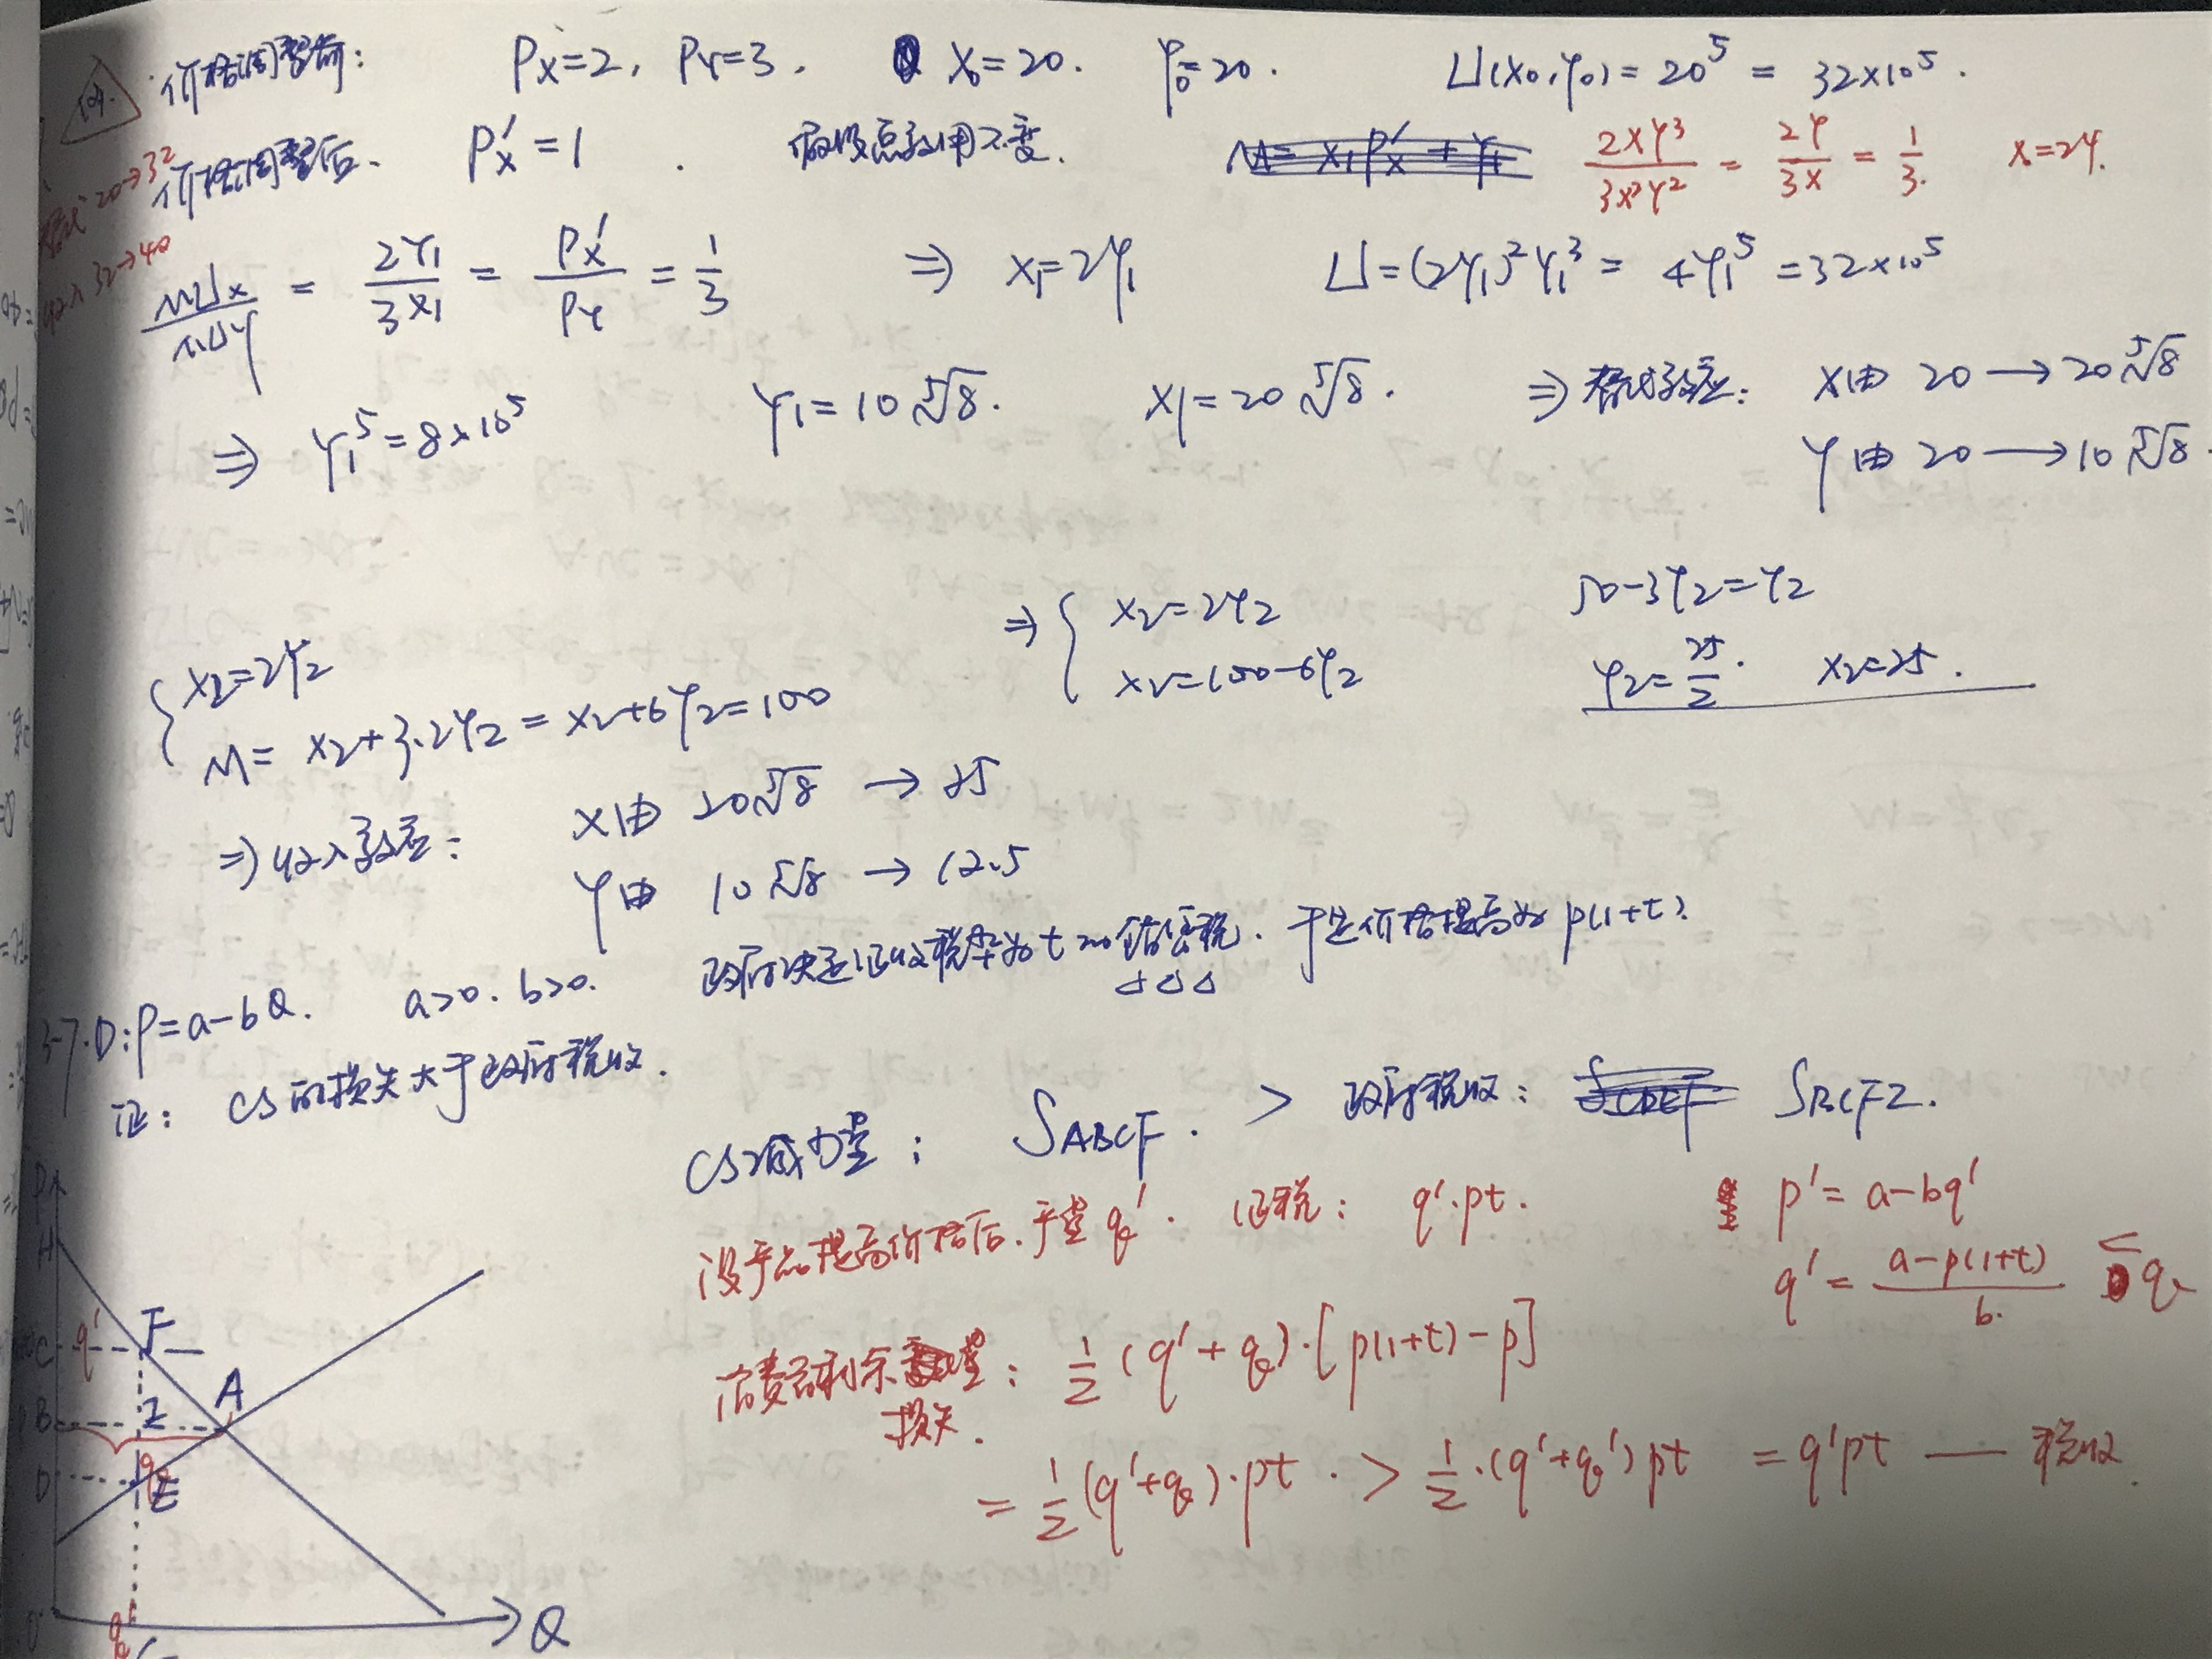 价格调整前: Px=2, Py=3. X₀=20. Y₀=20. U(x₀,y₀)=20⁵=32×10⁵.
价格调整后. Px′=1. 假设总效用不变. M=x₁Px′+Y₁ 2xy³/3x²y²=2y/3x=1/3. x=2y.
替代 20→32
收入 32→40
MUx/MUy=2Y₁/3X₁=Px′/Py=1/3 ⇒ X₁=2Y₁ U=(2Y₁)²Y₁³=4Y₁⁵=32×10⁵
⇒ Y₁⁵=8×10⁵ Y₁=10⁵√8. X₁=20⁵√8. ⇒替代效应: X由 20→20⁵√8
Y由 20→10⁵√8.
{ X₂=2Y₂ ⇒{ X₂=2Y₂ 50-3Y₂=Y₂
M=X₂+3·2Y₂=X₂+6Y₂=100 X₂=100-6Y₂ Y₂=25/2. X₂=25.
⇒收入效应: X由 20⁵√8→25
Y由 10⁵√8→12.5
3-7. D:P=a-bQ. a>0. b>0. 政府决定征收税率为t的从价税. 于是价格提高为P(1+t).
证: CS的损失大于政府税收.
CS减少量: S_ABCF. > 政府税收: S_BCFZ.
设产品提高价格后.产量q′. 征税: q′·pt. p′=a-bq′
q′=a-p(1+t)/b. < q
消费者剩余损失: 1/2(q′+q)·[p(1+t)-p]
=1/2(q′+q)·pt.>1/2·(q′+q′)pt =q′pt — 税收.
P
H
C q′ F
B Z A
D q E
O q′ Q